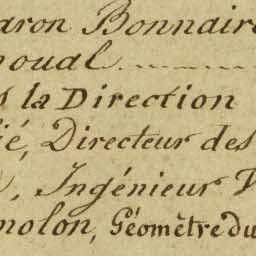 aron Bonnaire
noual
s la Direction
ié, Directeur des
, Ingénieur V
nolon, Géomètre du